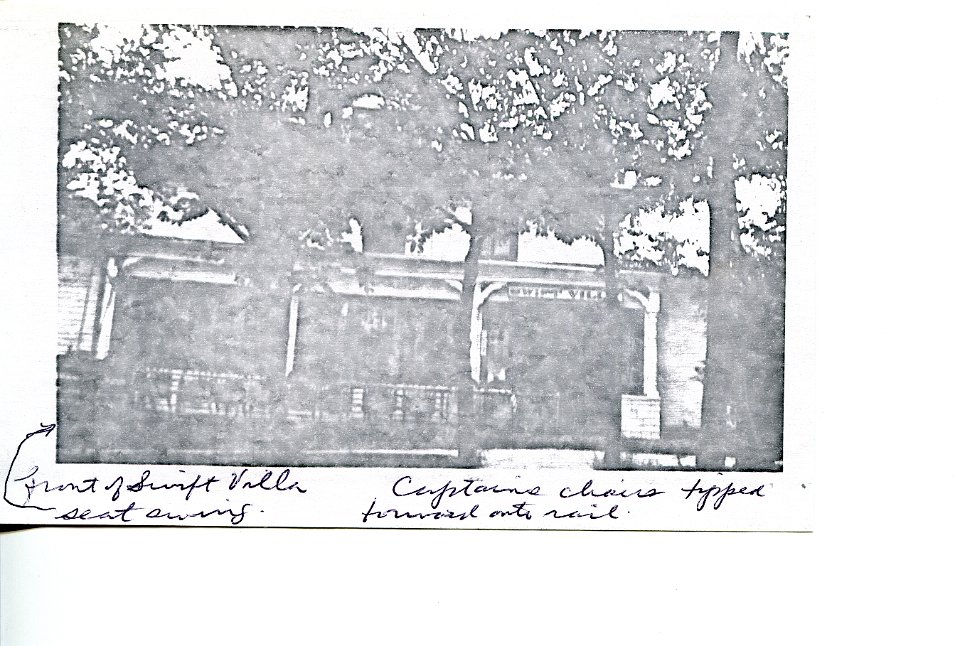 SWIFT VILL
front of Swift Villa
seat swing.
Captains chairs tipped
forward onto rail.